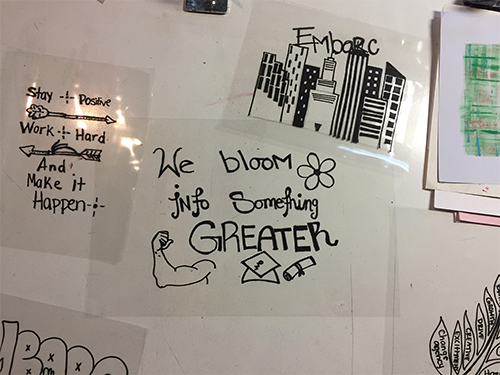 Embarc
Stay Positive
Work Hard
And
Make it
Happen
We bloom
into Something
GREATER
Change
agency
EXCITEMENT
CREATIVE
DRIVE